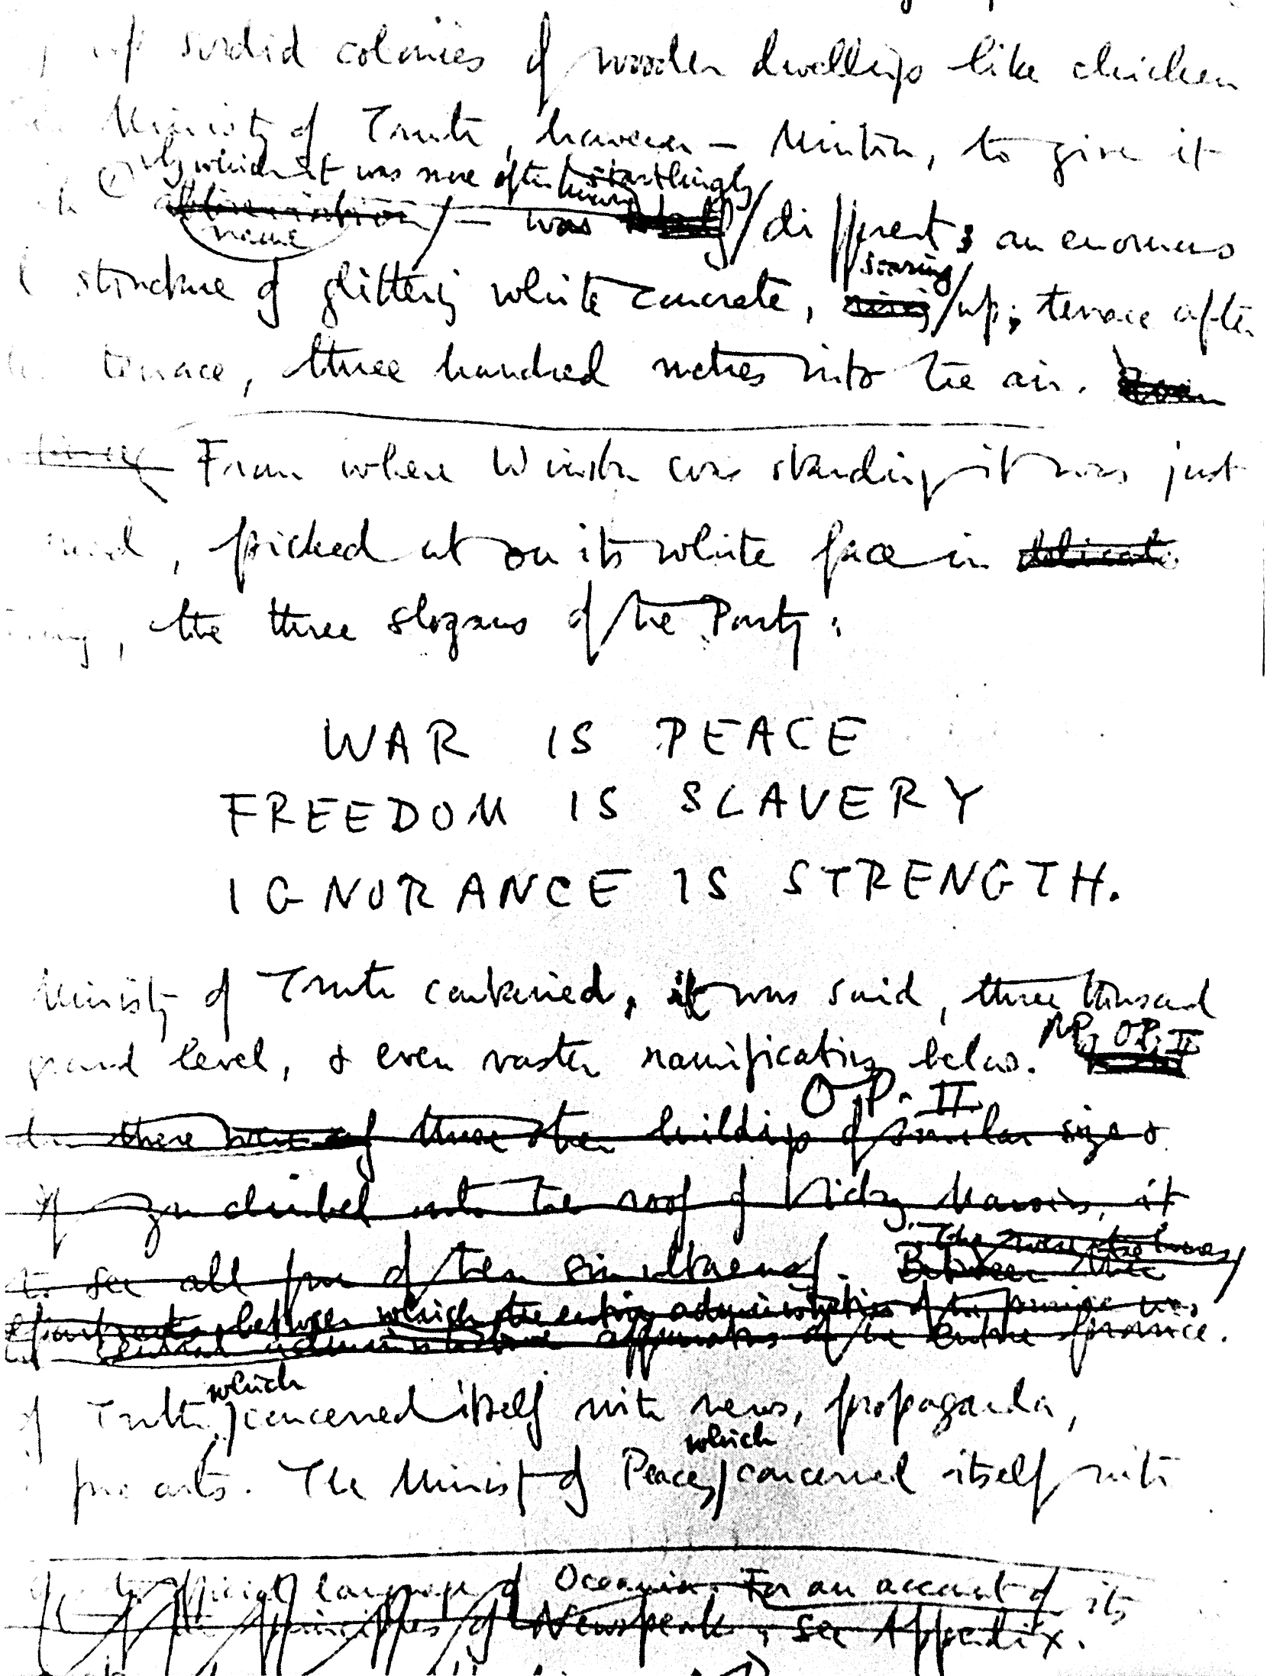 up sordid colonies of wooden dwellings like chicken
Ministry of Truth, however — Minitru, to give it
by which it was more often known startlingly
abbreviation / — was / different; an enormous
name
soaring
structure of glittering white concrete, rising / up, terrace after
terrace, three hundred metres into the air.
From where Winston was standing it was just
picked out on its white face in delicate
, the three slogans of the Party:
WAR IS PEACE
FREEDOM IS SLAVERY
IGNORANCE IS STRENGTH.
Ministry of Truth contained, it was said, three thousand
ground level, & even vaster ramifications below.
O.P. II
there were three other buildings of similar size &
if you climbed onto the roof of Victory Mansions, it
to see all four of them simultaneously. Between them
between which the entire administration of the province was
central administrative apparatus of the entire province.
which
of Truth, / concerned itself with news, propaganda,
which
fine arts. The Ministry of Peace, / concerned itself with
official language of Oceania. For an account of its
principles of Newspeak, see Appendix.